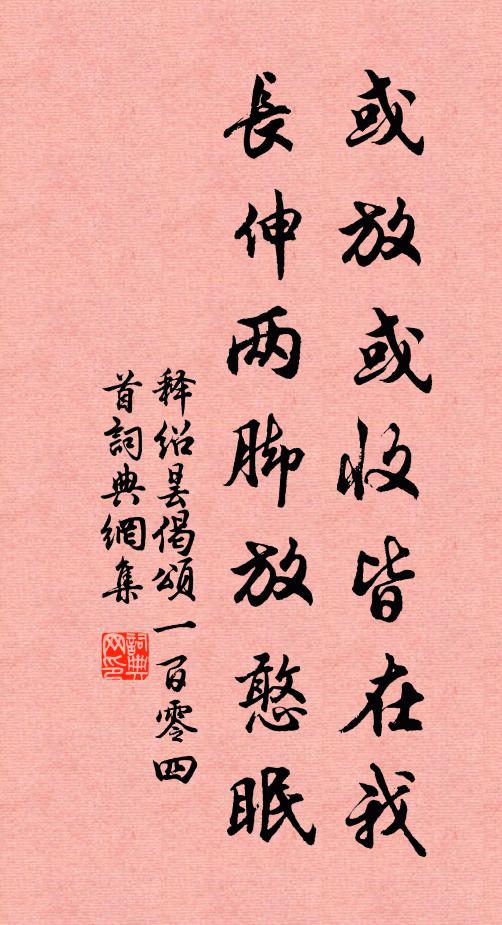 或放或收皆在我
長伸两脚放憨眠
释绍昙偈頌一百零四
首詞典網集
詞典网印